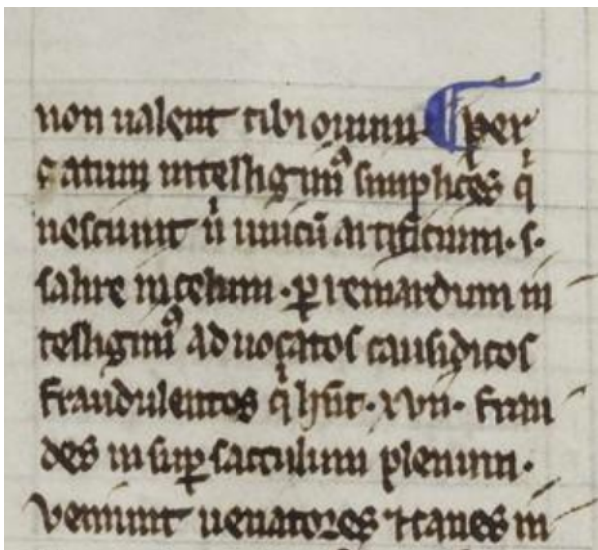 non ualent tibi ouum ¶ per
catum intelligimꝰ simplices qͥ
nesciunt nͥ unicū artificium · s ·
salire in celum · ꝑ renardum in
telligimꝰ aduocatos causidicos
fraudulentos qͥ hn̄t · xvii · frau
des insuꝑ sacculum plenum ·
veniunt uenatores ⁊ canes in